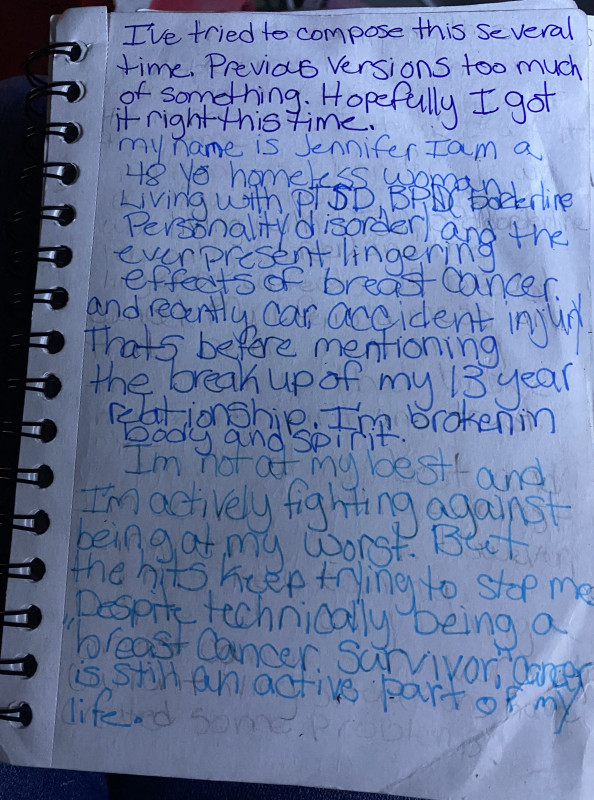 I've tried to compose this several
time. Previous versions too much
of something. Hopefully I got
it right this time.
my name is Jennifer I am a
48 yo homeless woman
Living with PTSD, BPD( borderline
Personality disorder) and the
ever present lingering
effects of breast cancer
and recently car accident injury
Thats before mentioning
the break up of my 13 year
relationship. I'm broken in
body and spirit.
I'm not at my best and
I'm actively fighting against
being at my worst. But
the hits keep trying to stop me
Despite technically being a
"breast cancer survivor," cancer
is still an active part of my
life.